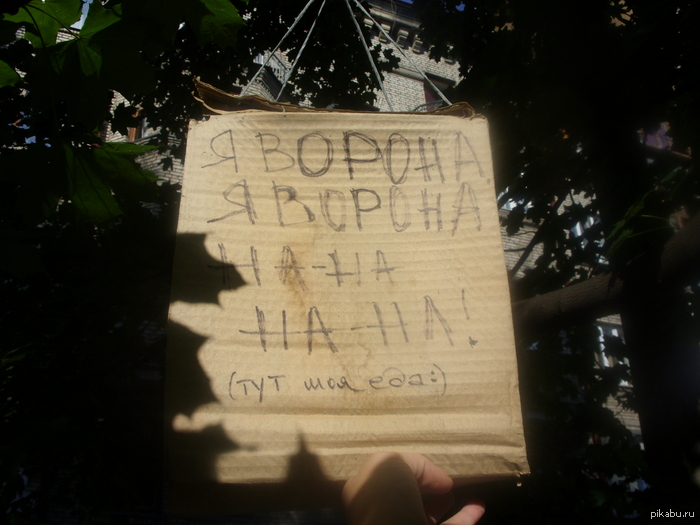 Я ВОРОНА
Я ВОРОНА
НА-НА
НА-НА!
(тут моя еда:)
pikabu.ru